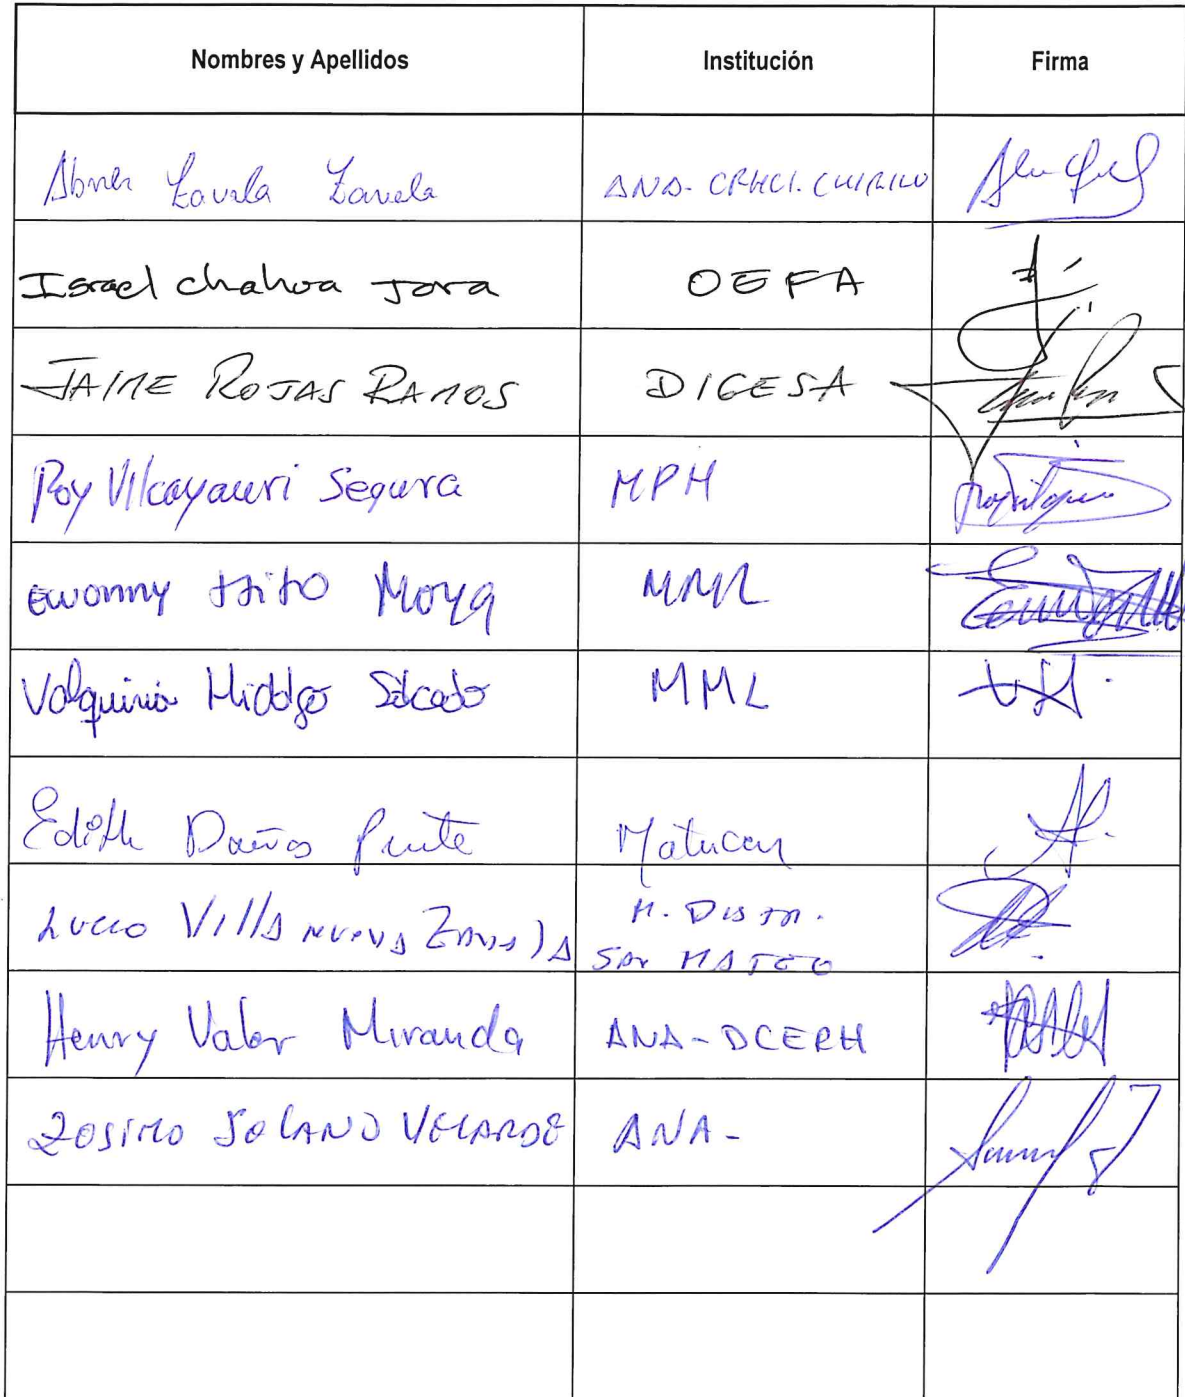 Nombres y Apellidos Institución Firma
Abner Zavala Zavala ANA-CRHCI. CHIRILU
Israel Chahua Jara OEFA
JAIME ROJAS RAMOS DIGESA
Roy Vilcayauri Segura MPH
Ewonny Moya MML
Valquiria Hidalgo Salcedo MML
Edith Puente Matucana
Lucio Villanueva Zavala M. DISTR.
SAN MATEO
Henry Valer Miranda ANA-DCERH
ZOSIMO SOLANO VELARDE ANA-